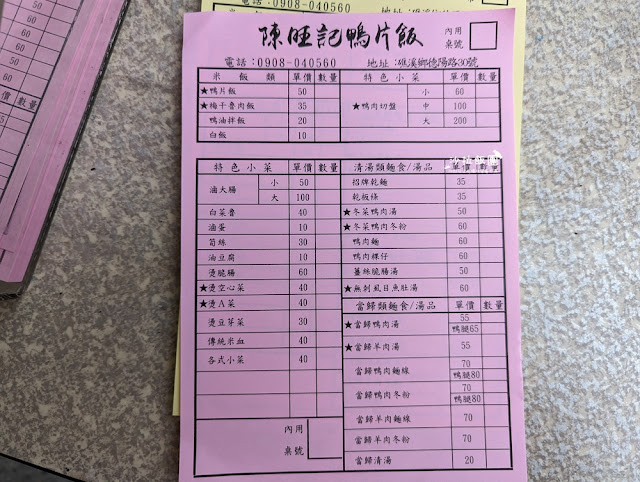 電話:0908-040560
陳旺記鴨片飯
內用
桌號
電話:0908-040560 地址:礁溪鄉德陽路30號
米飯類 單價 數量 特色小菜 單價 數量
★鴨片飯 50
★梅干魯肉飯 35
鴨油拌飯 20
白飯 10
★鴨肉切盤 小 60
中 100
大 200
特色小菜 單價 數量
滷大腸 小 50
大 100
白菜魯 40
滷蛋 10
筍絲 30
油豆腐 10
燙脆腸 60
★燙空心菜 40
★燙A菜 40
燙豆芽菜 30
傳統米血 40
各式小菜 40
內用
桌號
清湯類麵食/湯品 單價 數量
招牌乾麵 35
乾板條 35
★冬菜鴨肉湯 50
★冬菜鴨肉冬粉 60
鴨肉麵 60
鴨肉粿仔 60
薑絲脆腸湯 50
★無刺虱目魚肚湯 60
當歸類麵食/湯品 單價 數量
★當歸鴨肉湯 55
鴨腿65
★當歸羊肉湯 55
當歸鴨肉麵線 70
鴨腿80
當歸鴨肉冬粉 70
鴨腿80
當歸羊肉麵線 70
當歸羊肉冬粉 70
當歸清湯 20